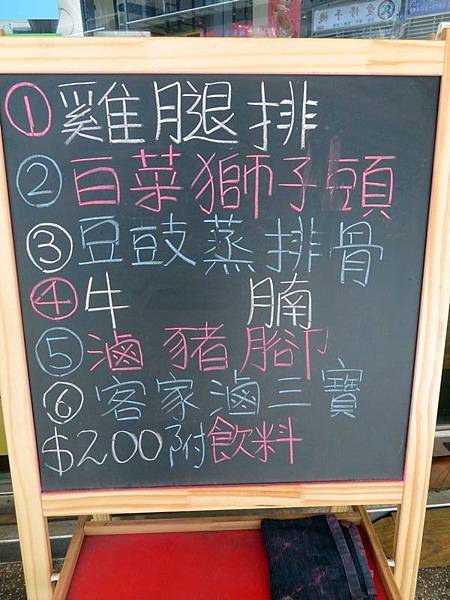 ① 雞腿排
② 白菜獅子頭
③ 豆鼓蒸排骨
④ 牛 腩
⑤ 滷豬腳
⑥ 客家滷三寶
$200附飲料